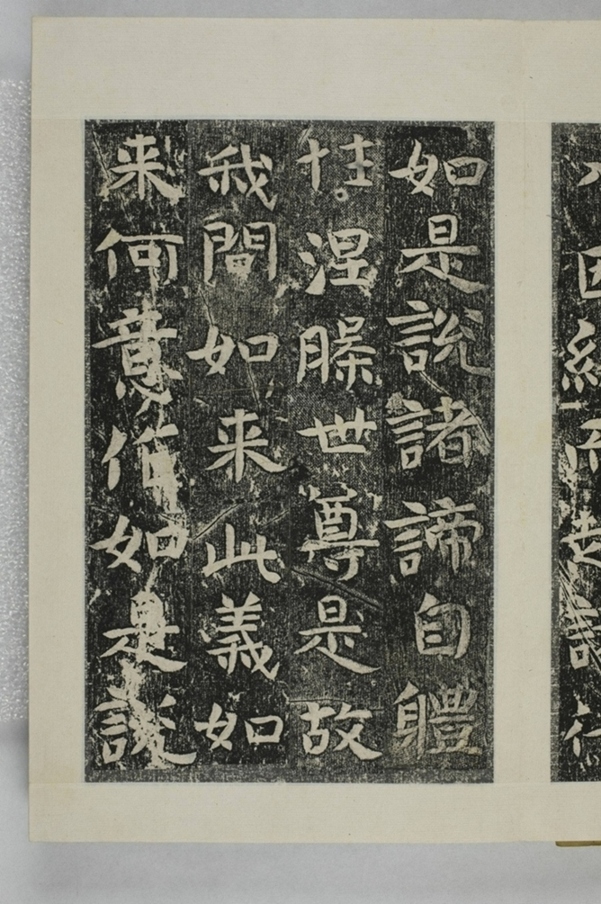 如是說諸諦自體
性涅槃世尊是故
我問如来此義如
来何意作如是說